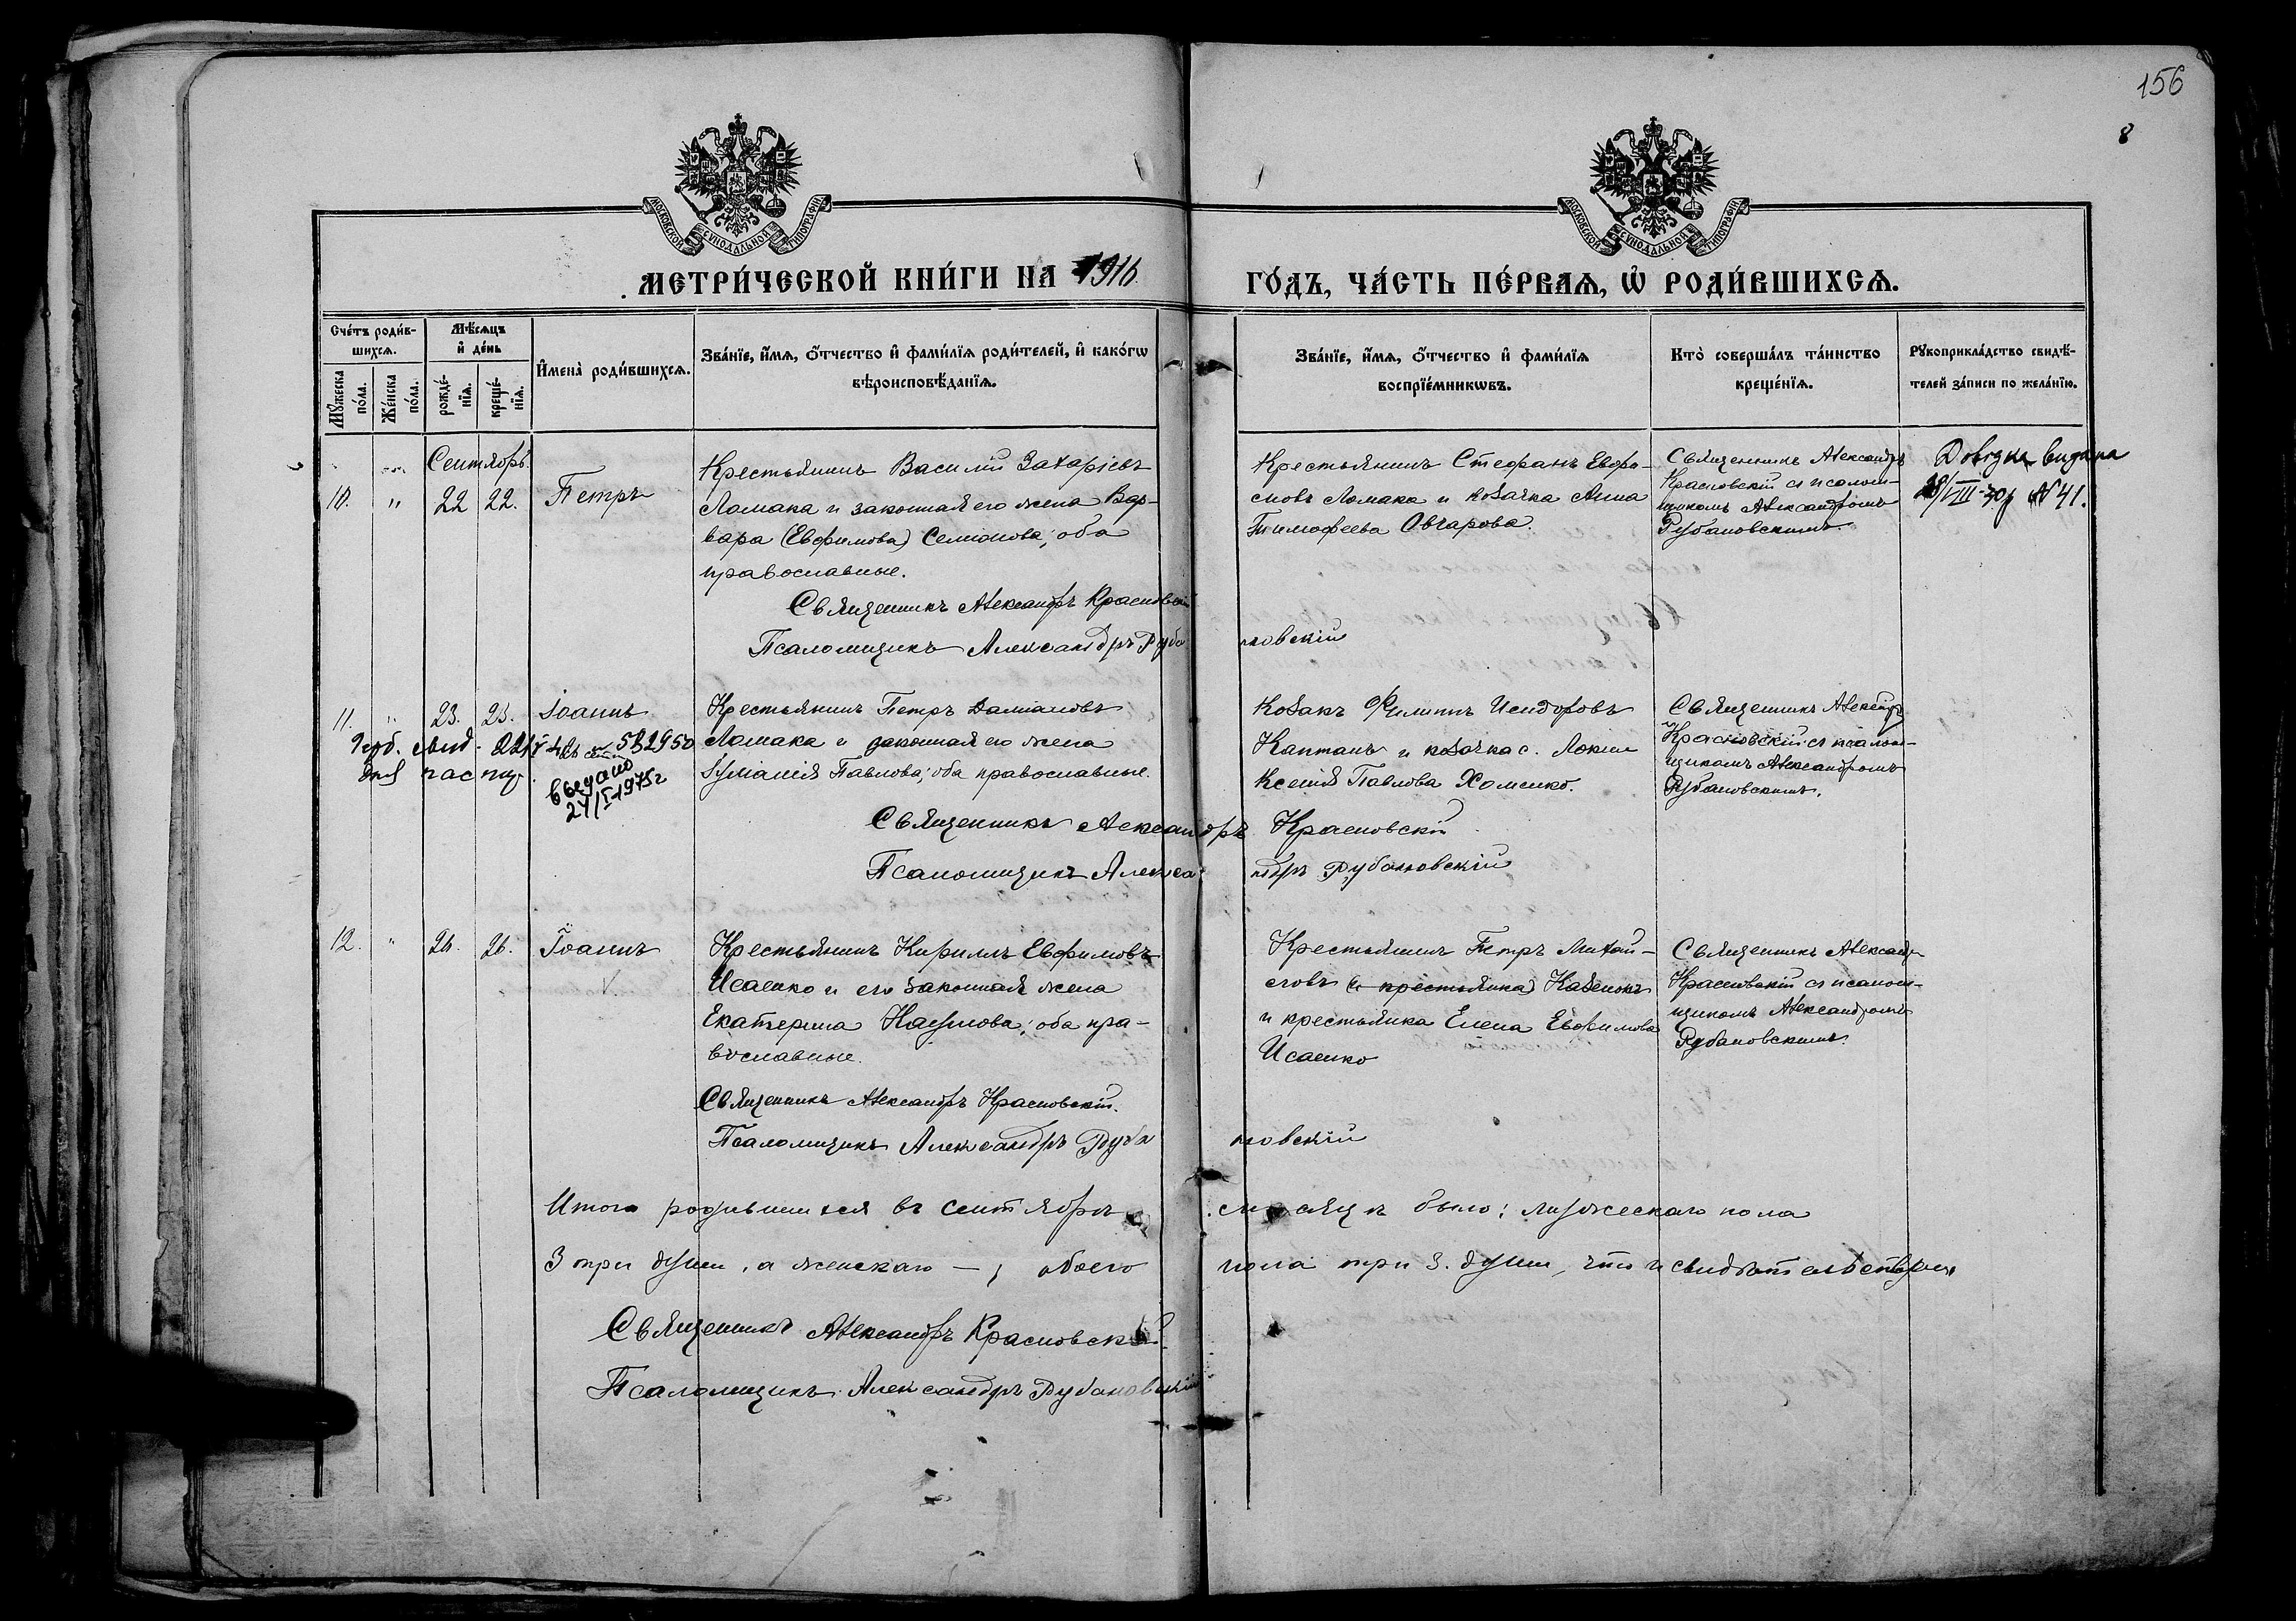 156
8
МОСКОВСКОЙ СѴНОДАЛЬНОЙ ТИПОГРАФІИ
МОСКОВСКОЙ СѴНОДАЛЬНОЙ ТИПОГРАФІИ
МЕТРИ́ЧЕСКОЙ КНИ́ГИ НА 1916
ГО́ДЪ, ЧА́СТЬ ПЕ́РВАѦ, Ѡ҆ РОДИ́ВШИХСѦ.
Сче́тъ роди́в-
шихсѧ.
Мꙋ́жеска по́ла.
Же́нска по́ла.
Мѣ́сѧцъ
и҆ де́нь
рожде́-
нїѧ.
креще́-
нїѧ.
И҆мена̀ роди́вшихсѧ.
Зва́нїе, и҆́мѧ, ѻ҆́тчество и҆ фами́лїѧ роди́телей, и҆ како́гѡ
вѣроисповѣ́данїѧ.
Зва́нїе, и҆́мѧ, ѻ҆́тчество и҆ фами́лїѧ
воспрїе́мникѡвъ.
Кто̀ соверша́лъ та́инство
креще́нїѧ.
Рꙋкоприкла́дство свидѣ́-
телей за́писи по жела́нїю.
Сентябрь.
10. " 22 22. Петръ
Крестьянинъ Василій Захаріевъ
Ломака и законная его жена Вар-
вара (Евфимова) Семіонова; оба
православные.
Священникъ Александръ Красновскій
Псаломщикъ Александръ Рубановскій
Крестьянинъ Стефанъ Евфи-
мовъ Ломака и козачка Анна
Тимофеева Овчарова.
Священникъ Александръ
Красновскій съ псалом-
щикомъ Александромъ
Рубановскимъ.
Довідка видана
28/VIII-30р №41.
11. " 23. 23. Іоаннъ
532950
видано
24/I-1975г
Крестьянинъ Петръ Даміановъ
Ломака и законная его жена
Іуліанія Павлова; оба православные.
Священникъ Александръ Красновскій
Псаломщикъ Александръ Рубановскій
Козакъ Филиппъ Исидоровъ
Каптанъ и козачка с. Локни
Ксенія Павлова Хоменко.
Священникъ Александръ
Красновскій съ псалом-
щикомъ Александромъ
Рубановскимъ.
12. " 26. 26. Іоаннъ
Крестьянинъ Кириллъ Евфимовъ
Исаенко и его законная жена
Екатерина Наумова; оба пра-
вославные.
Священникъ Александръ Красновскій.
Псаломщикъ Александръ Рубановскій
Крестьянинъ Петръ Михай-
ловъ (и крестьянка)
и крестьянка Елена Евфимова
Исаенко
Священникъ Александръ
Красновскій съ псалом-
щикомъ Александромъ
Рубановскимъ.
Итого родившихся въ сентябрѣ мѣсяцѣ было: мужескаго пола
3 три души, а женскаго —, обоего пола три 3. души, что и свидѣтельствуемъ
Священникъ Александръ Красновскій.
Псаломщикъ Александръ Рубановскій